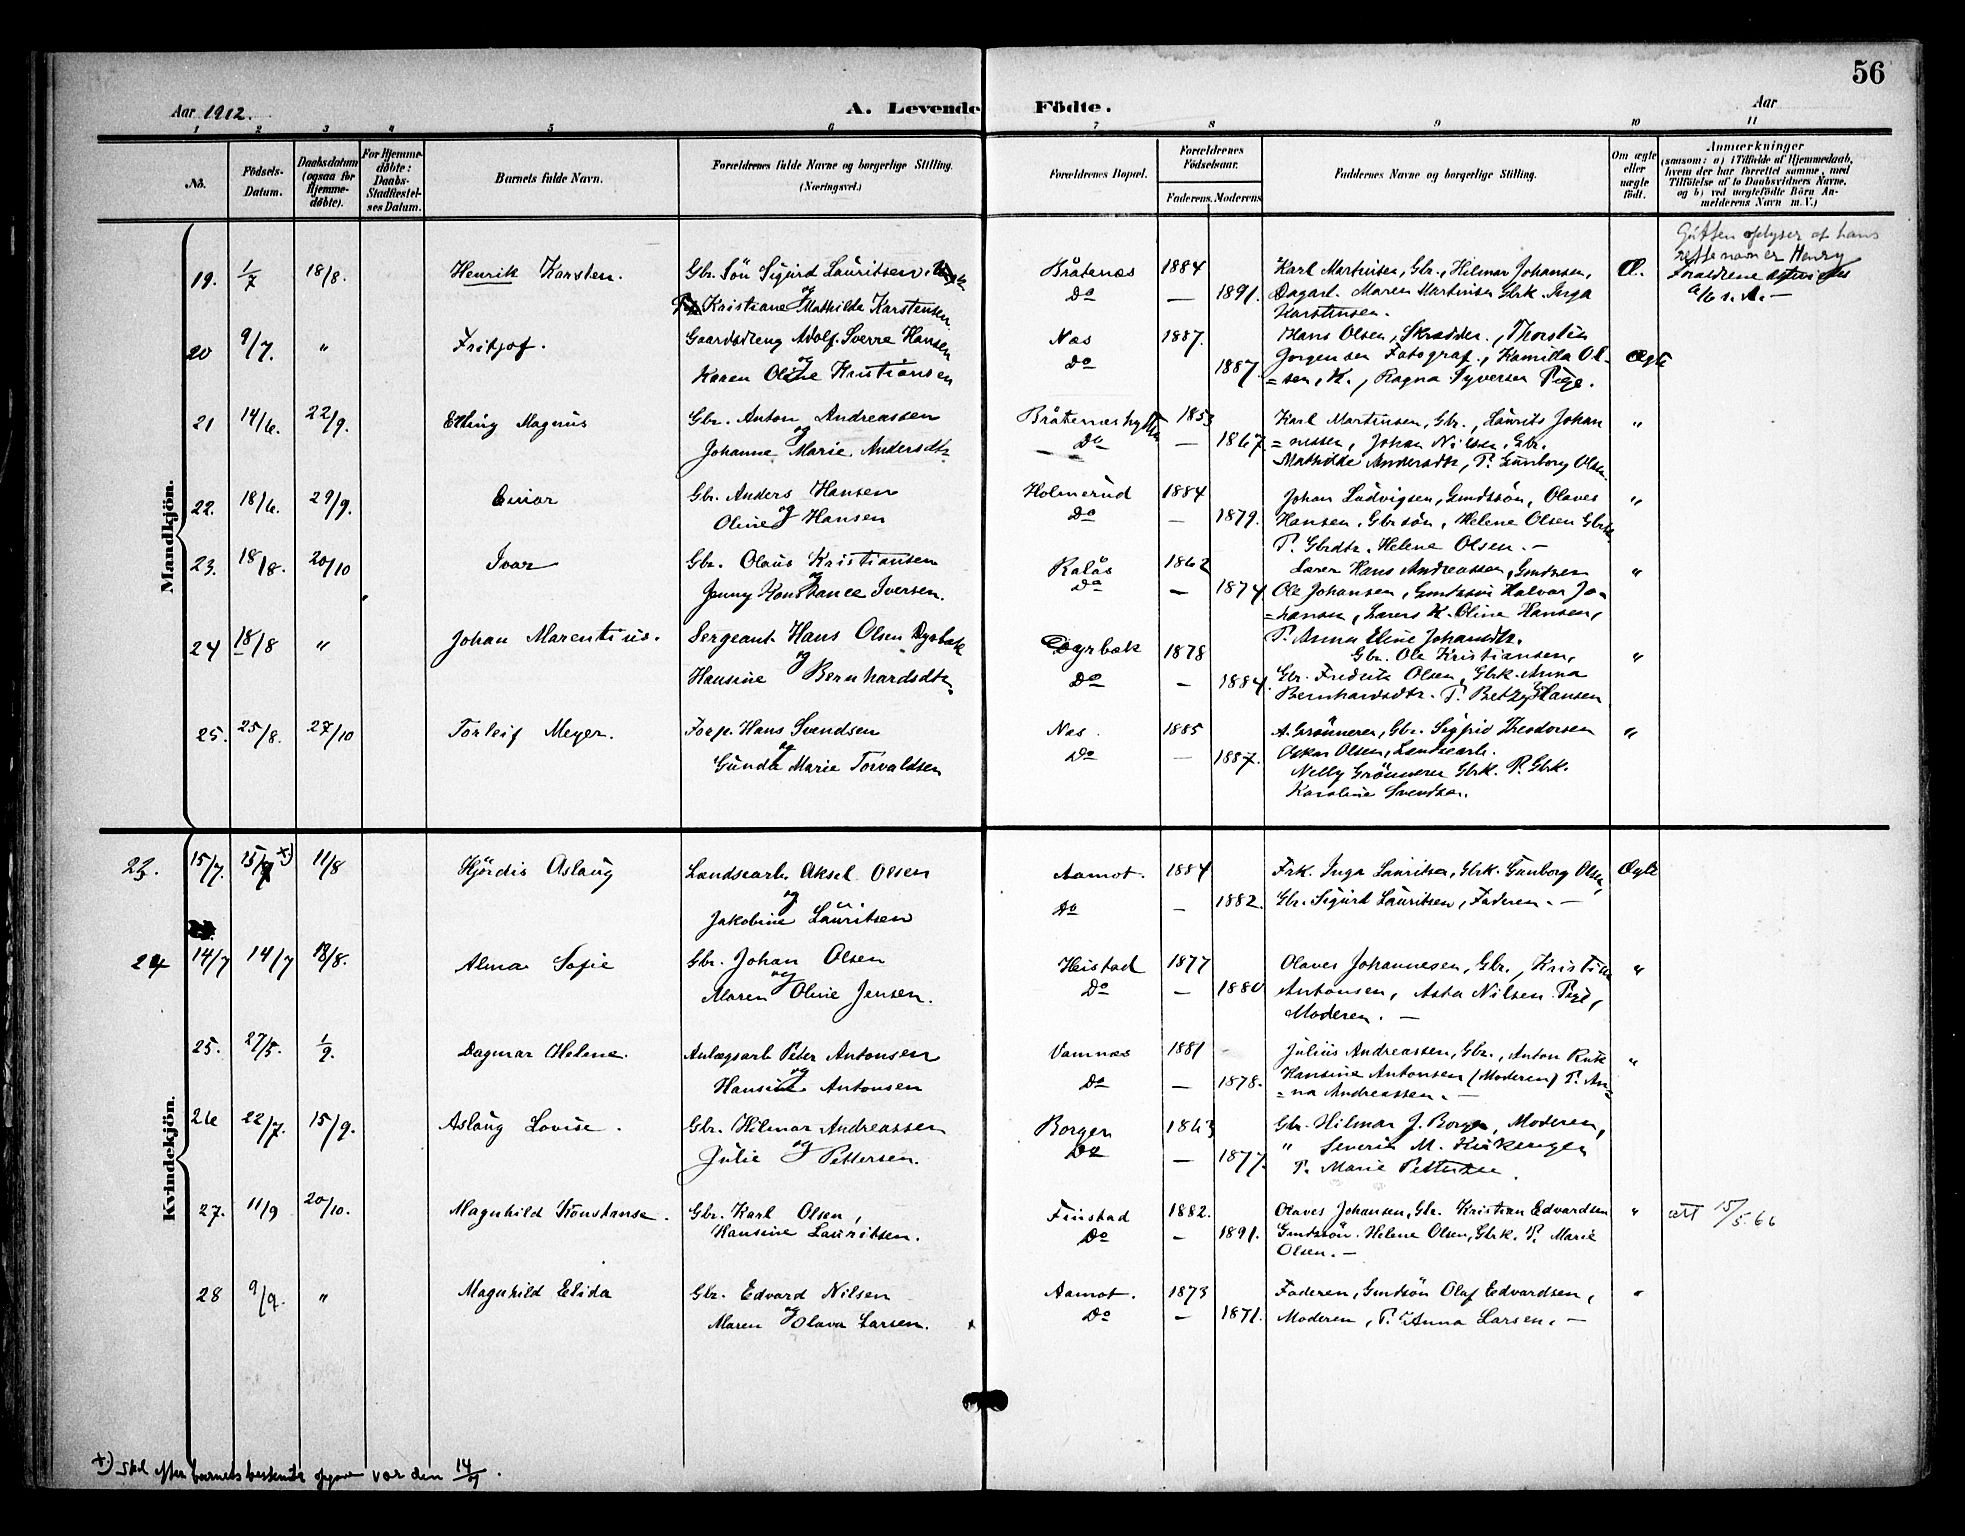 56
Aar 1912.
A. Levende Födte.
Aar
1 2 3 4 5 6 7 8 9 10 11
No.
Födsels-Datum.
Daabsdatum (ogsaa for Hjemmedöbte).
For Hjemmedöbte: Daabs-Stadfæstelses Datum.
Barnets fulde Navn.
Forældrenes fulde Navne og borgerlige Stilling. (Næringsvei.)
Forældrenes Bopæl.
Forældrenes Födselsaar.
Faderens. Moderens.
Faddernes Navne og borgerlige Stilling.
Om ægte eller uægte födt.
Anmærkninger
(saasom: a) i Tilfælde af Hjemmedaab, hvem der har forrettet samme, med Tilföielse af to Daabsvidners Navne, og b) ved uægtefödte Börn Anmelderens Navn m. V.)
Mandkjön.
19. 1/7 18/8. Henrik Karsten. Gbr. Sön Sigurd Lauritsen
og
Kristiane Mathilde Karstensen
Bråtenæs 1884
Do — 1891.
Karl Martinsen, Gbr., Hilmar Johansen,
Dagarb. Maren Martinsen Gbrk. Inga
Karstensen.
Æ.
Gutten oplyser at hans
er Henry
Forældrene
20 9/7. " Fritjof. Gaardsdreng Adolf Sverre Hansen
og
Karen Oline Kristiansen
Næs 1887.
Do 1887.
Hans Olsen, Skrædder., Thorstein
Jörgensen Fotograf., Kamilla Ol-
=sen, K., Ragna Syversen Pige.
Ægte
21 14/6. 22/9. Elling Magnus Gbr. Anton Andreassen
og
Johanne Marie Andersdtr.
Bråtenæshytten 1853
Do — 1867.
Karl Martinsen, Gbr., Laurits Johan
=nessen, Johan Nilsen, Gbr.
Mathilde Andersdtr, P. Gunborg Olsen
"
22. 18/6. 29/9. Einar Gbr. Anders Hansen
og
Oline Hansen
Holmerud 1884
Do — 1879.
Johan Ludvigsen, Gmdssön, Olaves
Hansen, Gbr sön, Helene Olsen Gbrk.
P. Gbrdtr. Helene Olsen. —
"
23. 18/8. 20/10 Ivar Gbr. Olaus Kristiansen
og
Jenny Konstance Iversen.
Kalås 1862
Do — 1874
Lærer Hans Andreassen,
Ole Johansen, Halvor Jo-
=hansen, Lærers K. Oline Hansen,
P. Anna Eline Johansdtr.
"
24 18/8 " Johan Marentius. Sergeant Hans Olsen Dyrbæk
og
Hansine Bernhardsdtr.
Dyrbæk 1878
Do — 1884.
Gbr. Ole Kristiansen,
Gbr. Fredrik Olsen, Gbrk. Anna
Bernhardsdtr. P. Betzy Hansen
"
25. 25/8. 27/10 Torleif Meyer. Forp. Hans Svendsen
og
Gunda Marie Torvaldsen
Næs. 1885
Do — 1887.
A. Grönneren, Gbr. Sigfrid Theodorsen
Oskar Olsen, Landsearb.
Nelly Grönneren Gbrk. P. Gbrk.
Karoline Svendsen.
"
Kvindekjön.
23. 15/7. 15/7 x) 11/8 Hjördis Aslaug Landsearb. Aksel Olsen
og
Jakobine Lauritsen
Aamot. 1884
Do — 1882.
Frk. Inga Lauritsen, Gbrk. Gunborg Olsen,
Gbr. Sigurd Lauritsen, Faderen. —
Ægte
24 14/7 14/7 18/8. Alma Sofie Gbr. Johan Olsen
og
Maren Oline Jensen.
Heistad 1877
Do — 1880
Olaves Johannesen, Gbr., Kristian
Antonsen, Asta Nilsen Pige,
Moderen. —
"
25. 27/5. 1/9. Dagmar Helene. Anlægsarb Peter Antonsen
og
Hansine Antonsen
Vamnæs 1881
Do — 1878.
Julius Andreassen, Gbr., Anton
Hansine Antonsen (Moderen) P. An-
=na Andreassen. —
"
26 22/7. 15/9. Aslaug Lovise. Gbr. Hilmar Andreassen
og
Julie Pettersen.
Borgen 1863
Do — 1877.
Gbr. Hilmar J. Borgen, Moderen,
" Severin M.
P. Marie Pettersen.
27. 11/9 20/10. Magnhild Konstanse. Gbr. Karl Olsen,
Hansine Lauritsen.
Finstad 1882.
Do — 1891.
Olaves Johansen, Gbr. Kristian Edvardsen
Gmdssön. Helene Olsen, Gbrk. P. Marie
Olsen. —
"
att 15/5.66
28 9/9. " Magnhild Elida Gbr. Edvard Nilsen
og
Maren Olava Larsen.
Aamot. 1873
Do — 1871.
Faderen, Gmdsön Olaf Edvardsen,
Moderen, P. Anna Larsen. —
"
x) Skal efter barnets bestemte opgave var den 14/